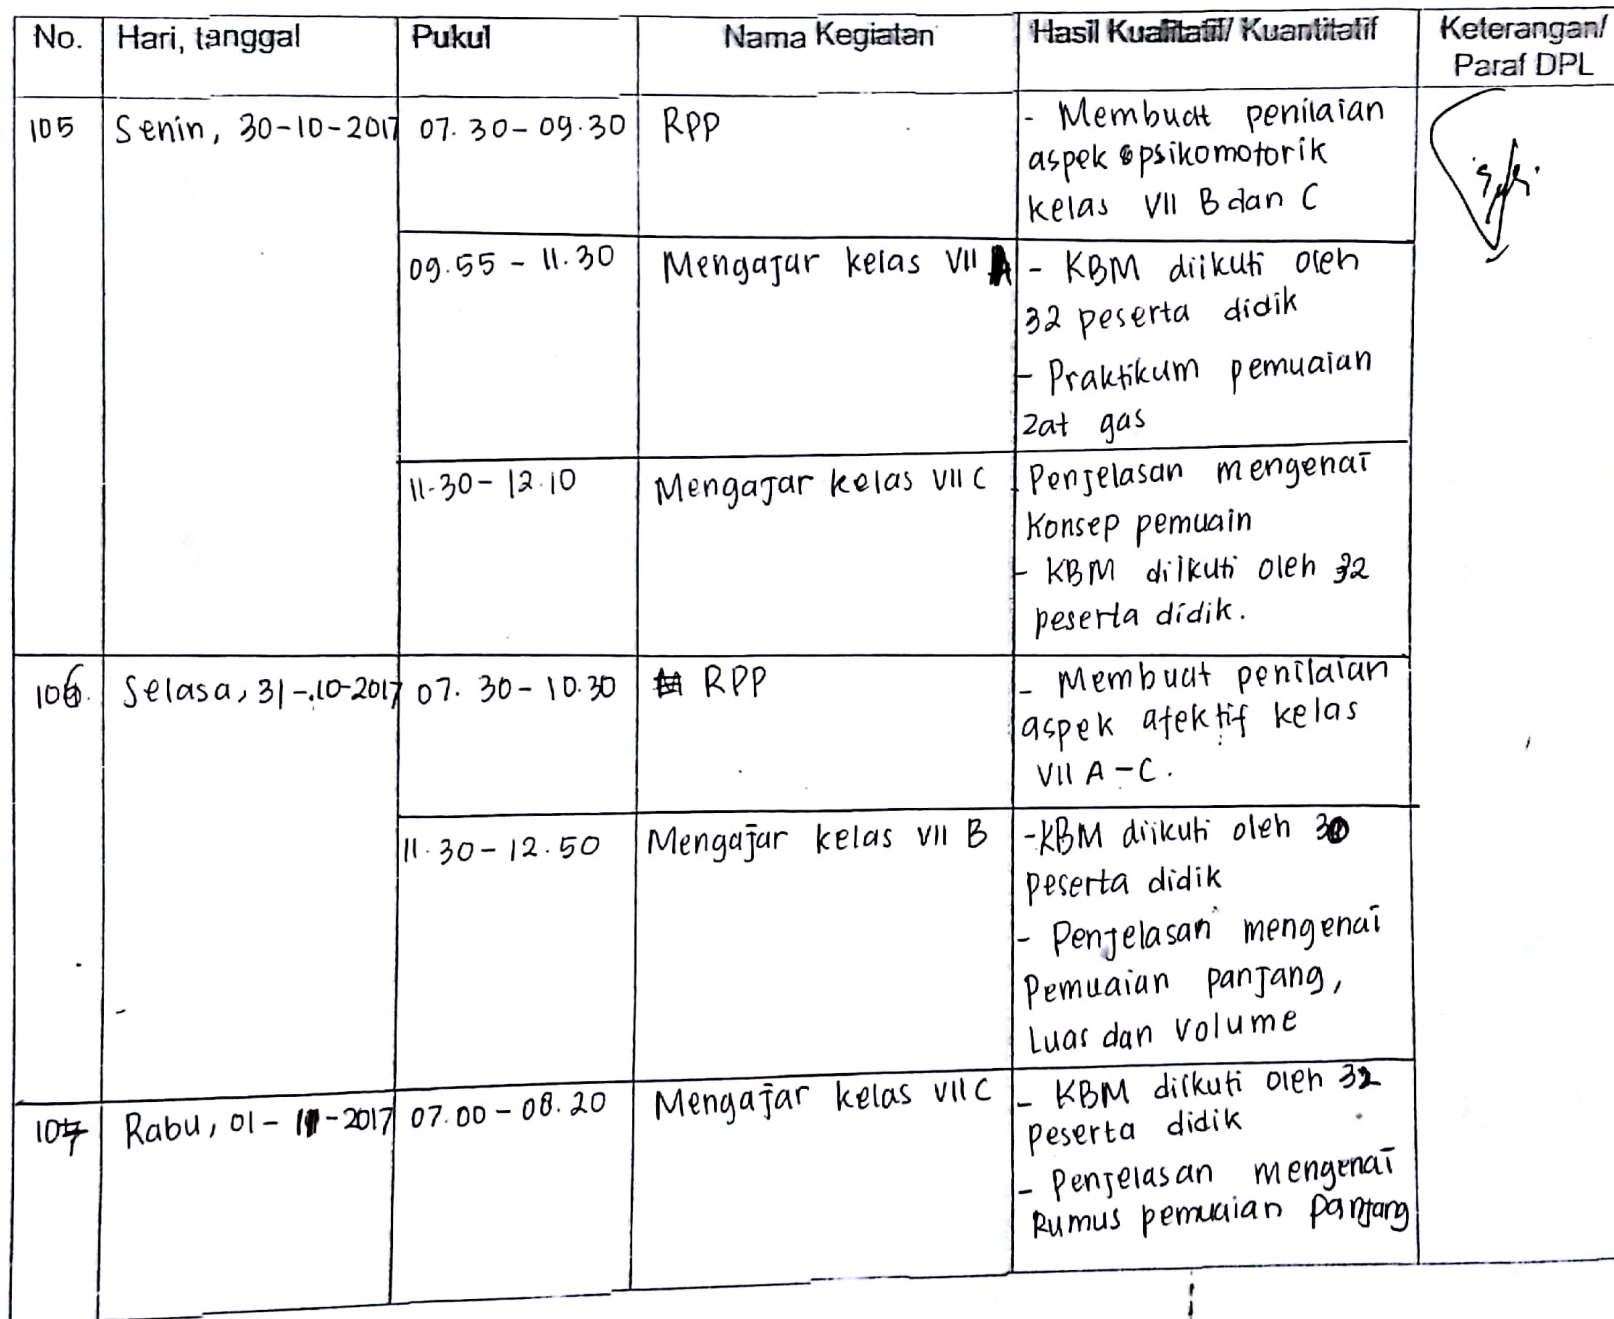 No. Hari, tanggal Pukul Nama Kegiatan Hasil Kualitatif/ Kuantitatif Keterangan/
Paraf DPL
105 Senin, 30-10-2017 07.30-09.30 RPP - Membuat penilaian
aspek psikomotorik
kelas VII B dan C
09.55 - 11.30 Mengajar kelas VII A - KBM diikuti oleh
32 peserta didik
- Praktikum pemuaian
zat gas
11.30 - 12.10 Mengajar kelas VII C - Penjelasan mengenai
Konsep pemuain
- KBM diikuti oleh 32
peserta didik.
106. Selasa, 31-10-2017 07.30-10.30 RPP - Membuat penilaian
aspek afektif kelas
VII A - C.
11.30-12.50 Mengajar kelas VII B -KBM diikuti oleh 30
peserta didik
- Penjelasan mengenai
Pemuaian panjang,
Luas dan volume
107 Rabu, 01-11-2017 07.00-08.20 Mengajar kelas VII C - KBM diikuti oleh 32
peserta didik
- Penjelasan mengenai
Rumus pemuaian Panjang